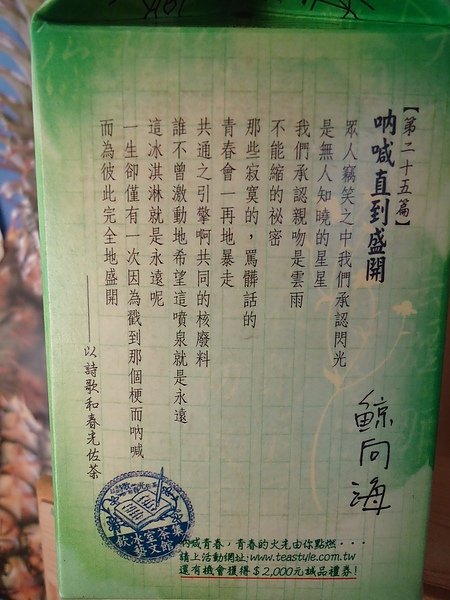 【第二十五篇】
吶喊直到盛開
眾人竊笑之中我們承認閃光
是無人知曉的星星
我們承認親吻是雲雨
不能縮的祕密
那些寂寞的，罵髒話的
青春會一再地暴走
共通之引擎啊共同的核廢料
誰不曾激動地希望這噴泉就是永遠
這冰淇淋就是永遠呢
一生卻僅有一次因為戳到那個梗而吶喊
而為彼此完全地盛開
——以詩歌和春光佐茶
鯨向海
飲冰室茶集
藝文館
吶喊青春，青春的火光由你點燃···
請上活動網址:www.teastyle.com.tw
還有機會獲得$2,000元誠品禮券!